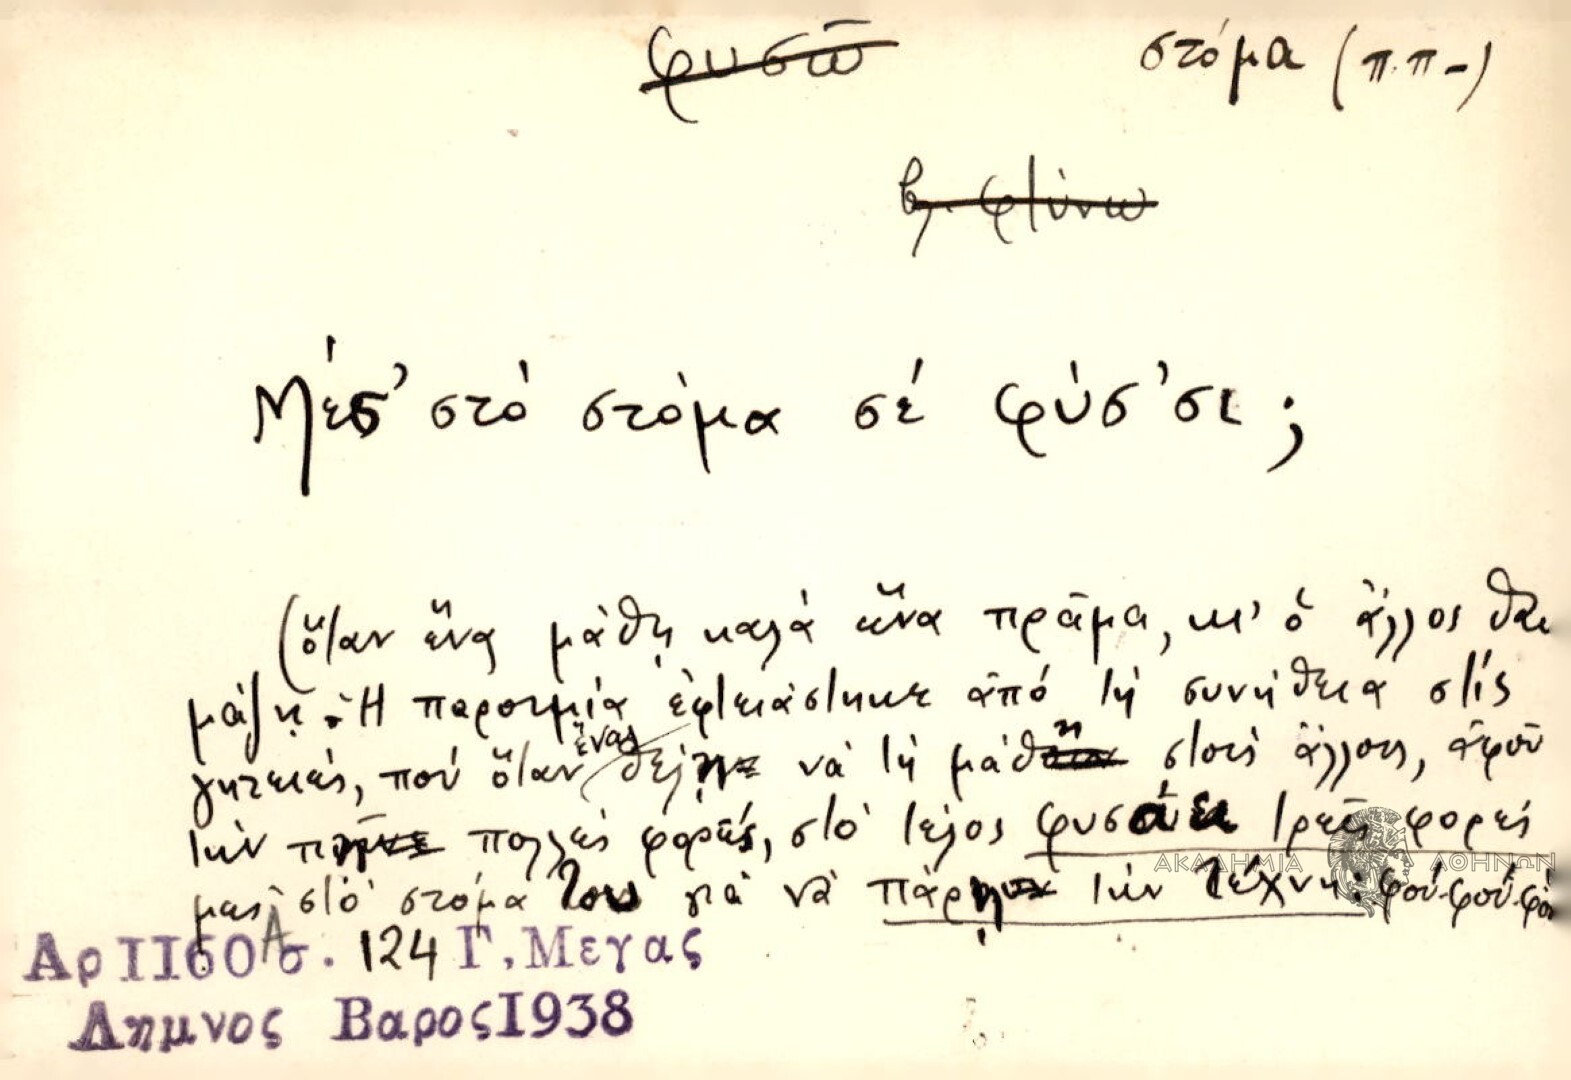 φυσῶ στόμα (π.π-)
βλ. φτύνω
Μέσ' στό στόμα σέ φύσ'σι ;
(ὅταν ἕνας μάθῃ καλά ἕνα πρᾶμα, κι' ὁ ἄλλος θαυ
μάζῃ. Ἡ παροιμία ἐφτειάστηκε ἀπό τή συνήθεια στίς
γητειές, πού ὅταν ἕνας θέλῃ νά τή μάθῃ στούς ἄλλους, ἀφοῦ
τήν πῇ πολλές φορές, στό τέλος φυσάει τρεῖς φορές
μες στό στόμα του γιά νά πάρῃ τήν τέχνη: φού-φού-φού
Αρ 1160 Α σ. 124 Γ. Μεγας
Λημνος Βαρος 1938
ΑΚΑΔΗΜΙΑ ΑΘΗΝΩΝ